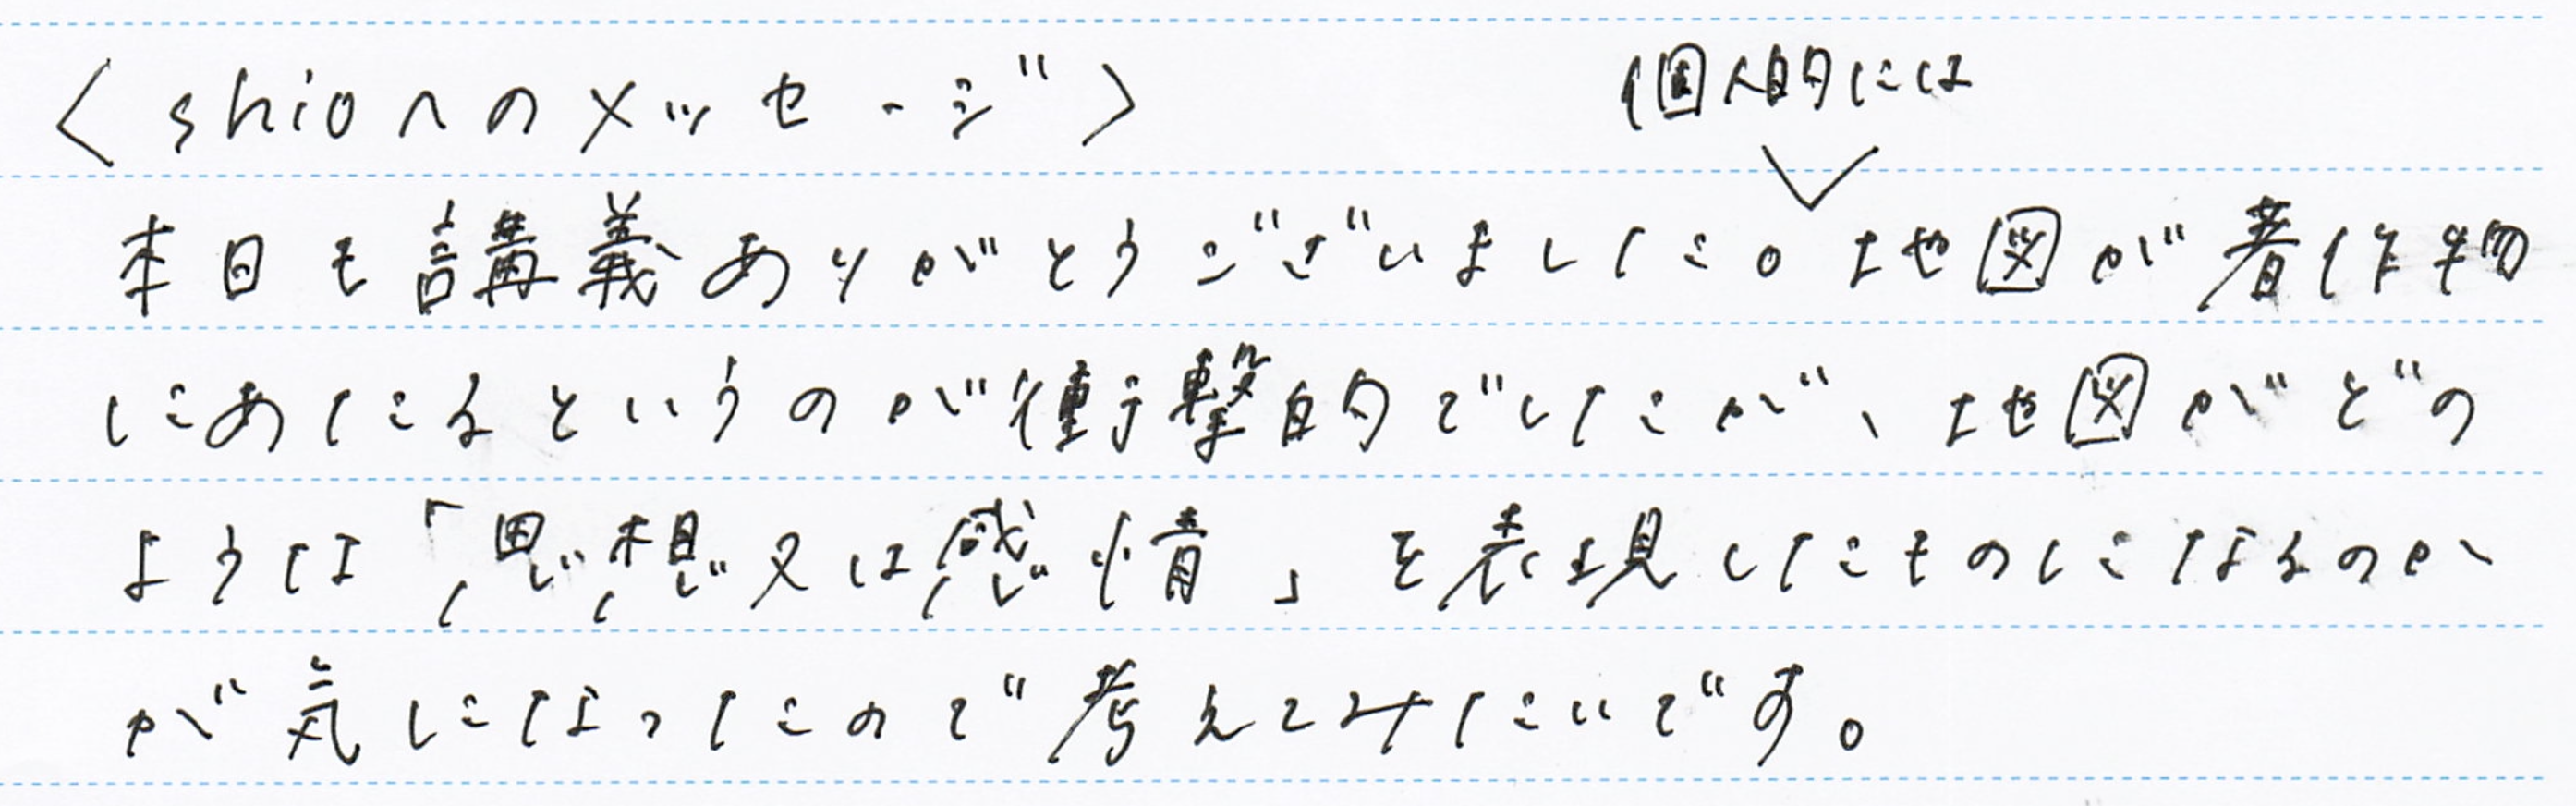 <shioへのメッセージ>
個人的には
本日も講義ありがとうございました。地図が著作物
にあたるというのが衝撃的でしたが、地図がどの
ように「思想又は感情」を表現したものになるのか
が気になったので考えてみたいです。